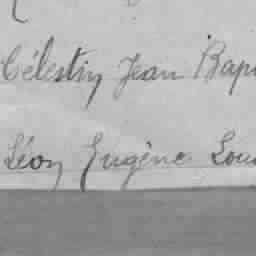 Célestin Jean Bap
Léon Eugène Lou